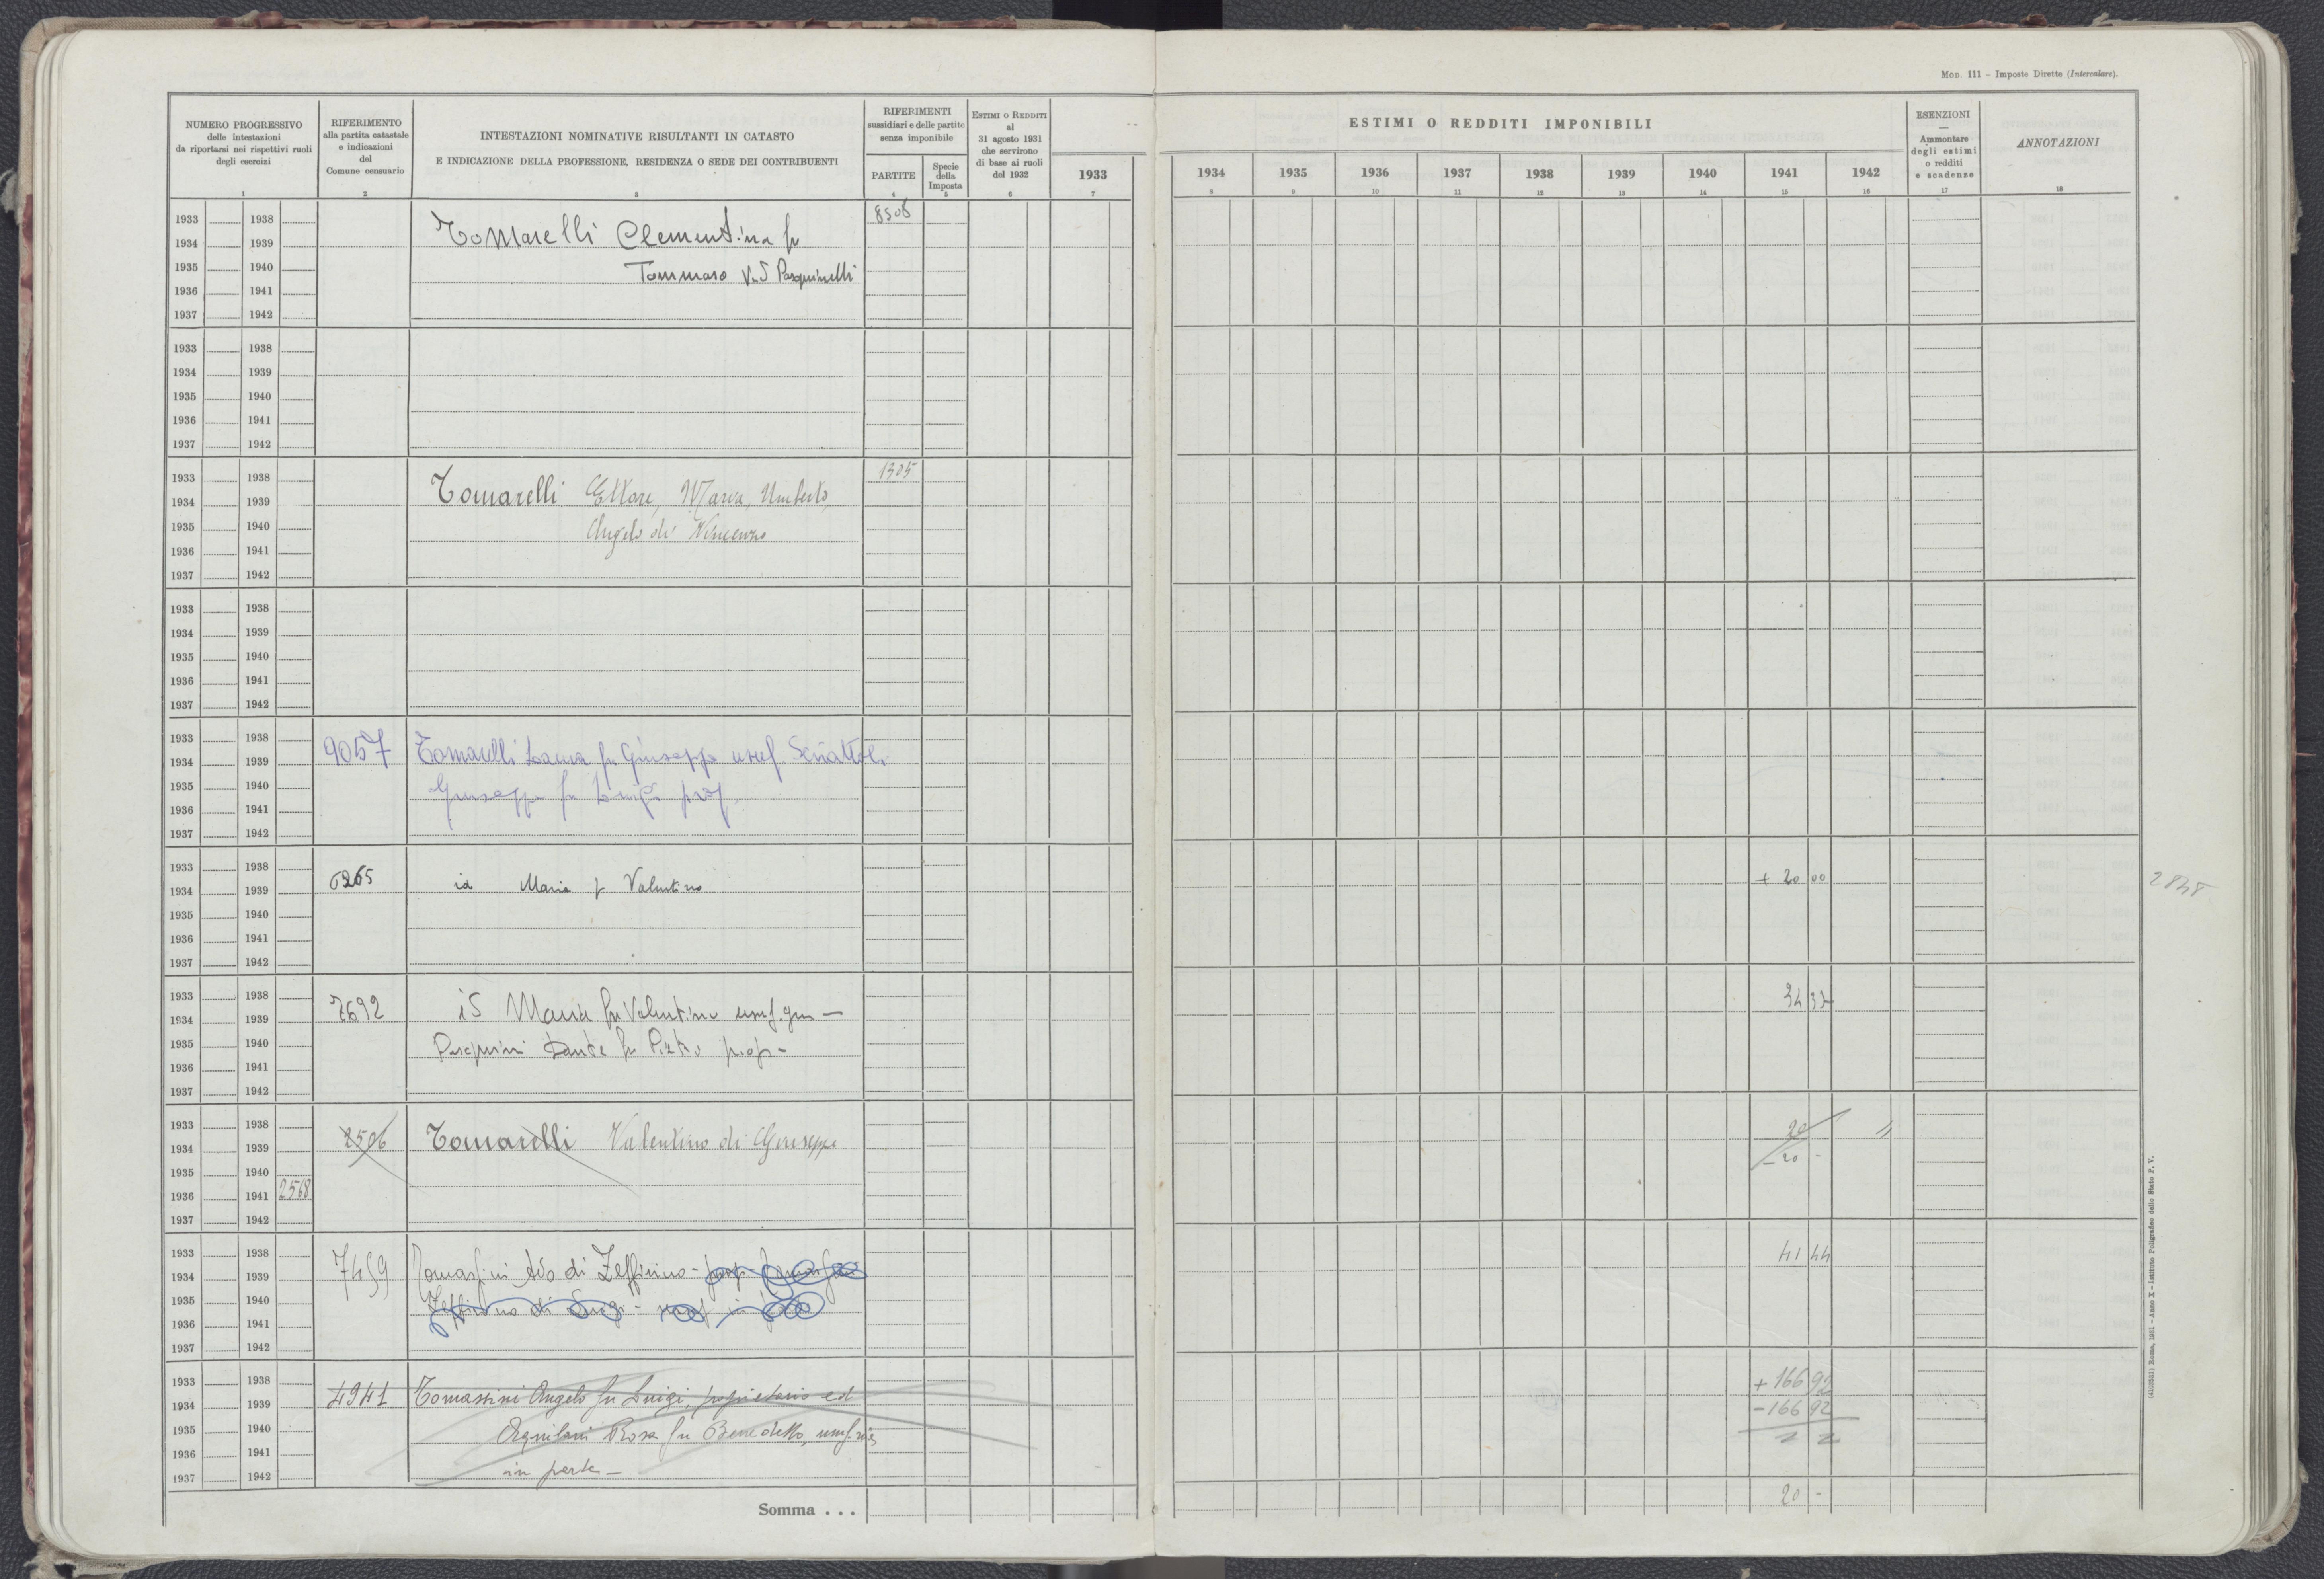 MOD. 111 - Imposte Dirette (Intercalare).
NUMERO PROGRESSIVO
delle intestazioni
da riportarsi nei rispettivi ruoli
degli esercizi
1
RIFERIMENTO
alla partita catastale
e indicazioni
del
Comune censuario
2
INTESTAZIONI NOMINATIVE RISULTANTI IN CATASTO
E INDICAZIONE DELLA PROFESSIONE, RESIDENZA O SEDE DEI CONTRIBUENTI
3
RIFERIMENTI
sussidiari e delle partite
senza imponibile
PARTITE
4
Specie
della
Imposta
5
ESTIMI O REDDITI
al
31 agosto 1931
che servirono
di base ai ruoli
del 1932
6
1933
7
ESTIMI O REDDITI IMPONIBILI
1934 1935 1936 1937 1938 1939 1940 1941 1942
8 9 10 11 12 13 14 15 16
ESENZIONI
Ammontare
degli estimi
o redditi
e scadenze
17
ANNOTAZIONI
18
1933 1938 8508
Tomarelli Clementina fu
1934 1939
Tommaso Vd Pasquinelli
1935 1940
1936 1941
1937 1942
1933 1938
1934 1939
1935 1940
1936 1941
1937 1942
1933 1938 1305
Tomarelli Ettore, Maria, Umberto,
1934 1939
Angelo di Vincenzo
1935 1940
1936 1941
1937 1942
1933 1938
1934 1939
1935 1940
1936 1941
1937 1942
1933 1938
9057 Tomarelli Laura fu Giuseppe usuf. Sciattoli
1934 1939
Giuseppe fu Luigi prop
1935 1940
1936 1941
1937 1942
1933 1938
6265 id Maria f Valentino + 20 00
1934 1939
1935 1940
1936 1941
1937 1942
1933 1938
7692 id Maria fu Valentino usuf. gen - 34 33
1934 1939
Pasquini Dante fu Pietro prop -
1935 1940
1936 1941
1937 1942
1933 1938
2506 Tomarelli Valentino di Giuseppe 20 //
1934 1939
- 20 -
1935 1940
1936 1941 2568
1937 1942
1933 1938
7459 Tomassini Ado di Zeffirino - prop. 41 44
1934 1939
Zeffirino di Luigi - usuf in
1935 1940
1936 1941
1937 1942
1933 1938
4941 Tomassini Angelo fu Luigi, proprietario ed + 166 92
1934 1939
- 166 92
Aquilani Rosa fu Benedetto, usuf.ria
1935 1940
1936 1941
in parte -
1937 1942
Somma . . . 20 -
(4103231) Roma, 1931 - Anno X - Istituto Poligrafico dello Stato P. V.